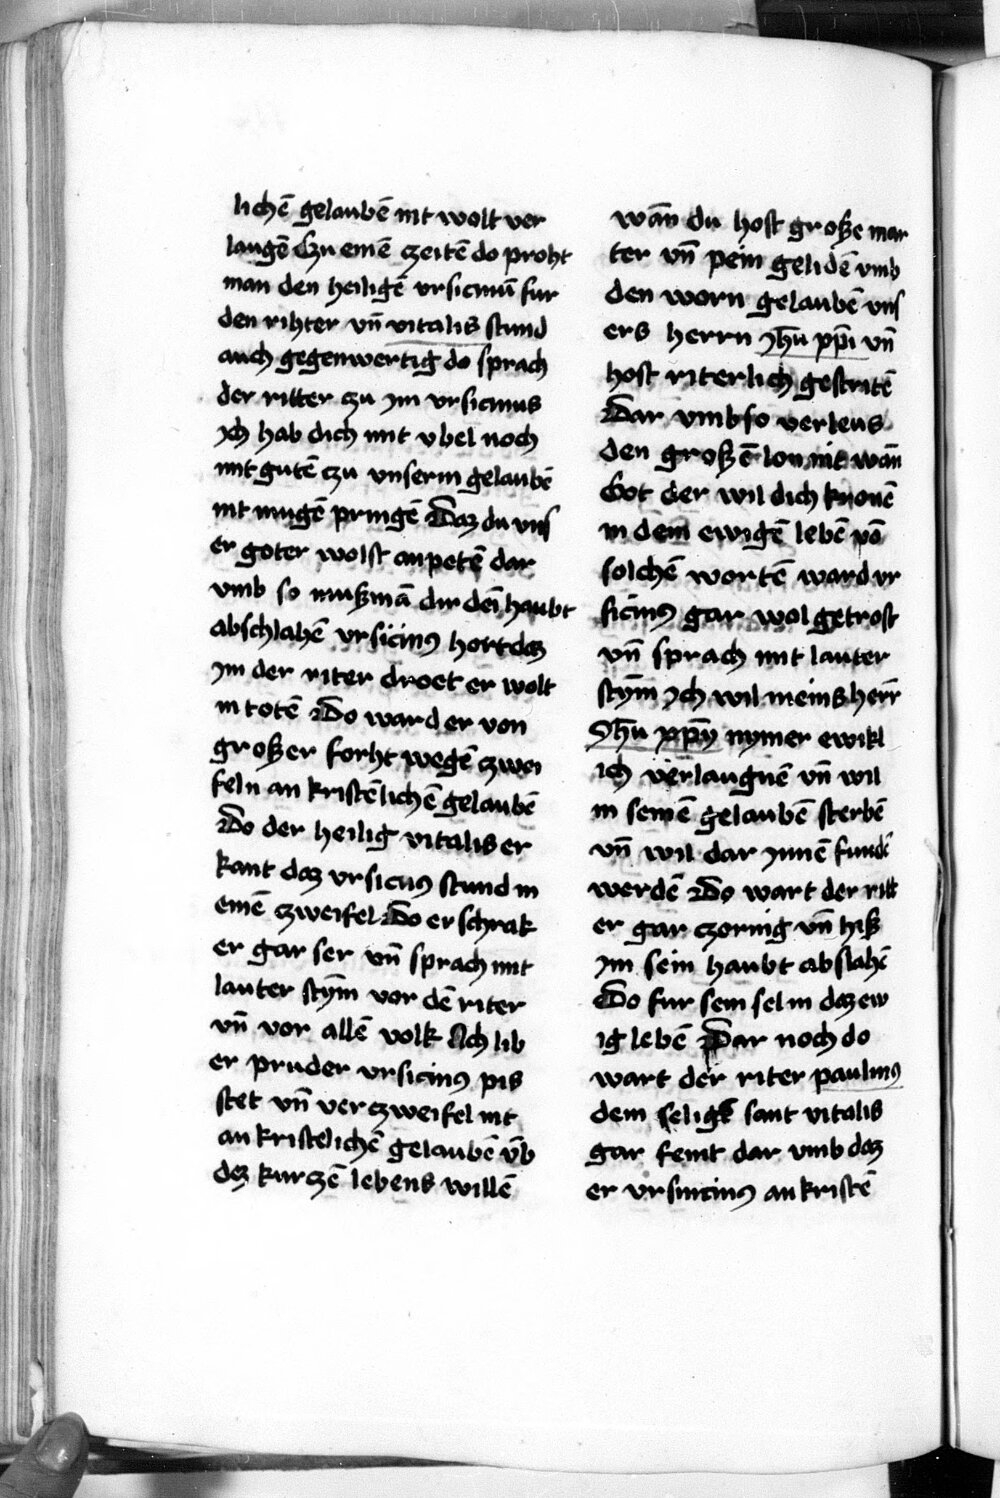 lichē gelaubē nit wolt ver
laugē Czu einē czeitē do proht
man den heiligē vrsicinū fur
den rihter vn̄ vitalis stund
auch gegenwertig do sprach
der ritter czu im vrsicinus
Ich hab dich mit vbel noch
mit gutē czu vnserm gelaubē
nit mugē pringē Daz du vns
er goter wolst anpetē dar
vmb so mußmā dir dei haubt
abschlahē vrsicinꝰ hort daz
Im der riter droet er wolt
in totē Do ward er von
großer forht wegē czwei
feln an kristēlichē gelaubē
Do der heilig vitalis er
kant daz vrsicnꝰ stund in
einē czweifel Do erschrak
er gar ser vn̄ sprach mit
lauter stym̄ vor dē riter
vn̄ vor allē volk Ach lib
er pruder vrsicinꝰ pis
stet vn̄ verczweifel nit
an kristelichē gelaubē vb̄
dez kurczē lebens willē
wān du host große mar
ter vn̄ pein gelidē vmb
den worn gelaubē vns
ers herrn Jhū xp̄i vn̄
host riterlich gestritē
Dar vmb so verleus
den großē lon nit wān
Got der wil dich kronē
in dem ewigē lebē vō
solchē wortē ward vr
sicinꝰ gar wol getrost
vn̄ sprach mit lauter
stym̄ Ich wil meins herr̄
Jhū xp̄y nymer ewikl
ich verlaugnē vn̄ wil
in seinē gelaubē sterbē
vn̄ wil dar Innē fundē
werdē Do wart der ritt
er gar czornig vn̄ hiß
Im sein haubt abslahē
Do fur sein sel in daz ew
ig lebē Dar noch do
wart der riter paulinꝰ
dem seligē sant vitalis
gar feint dar vmb daz
er vrsincinꝰ an kristē